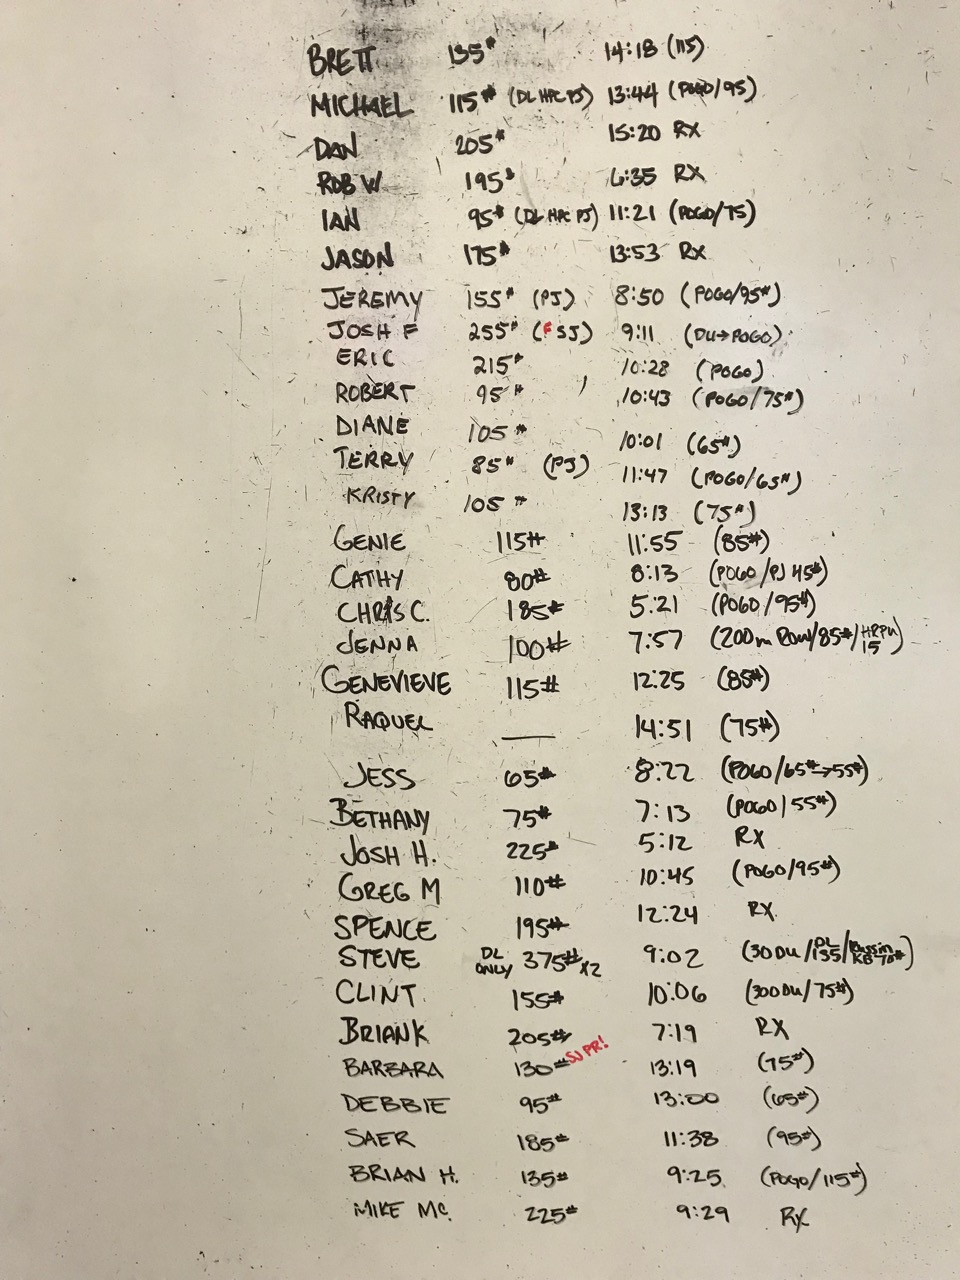 BRETT 135# 14:18 (115)
MICHAEL 115# (DL HPC PJ) 13:44 (POGO/95)
DAN 205# 15:20 RX
ROB W 195# 6:35 RX
IAN 95# (DL HPC PJ) 11:21 (POGO/75)
JASON 175# 13:53 RX
JEREMY 155# (PJ) 8:50 (POGO/95#)
JOSH F 255# (FSJ) 9:11 (DU→POGO)
ERIC 215# 10:28 (POGO)
ROBERT 95# 10:43 (POGO/75#)
DIANE 105# 10:01 (65#)
TERRY 85# (PJ) 11:47 (POGO/65#)
KRISTY 105# 13:13 (75#)
GENIE 115# 11:55 (85#)
CATHY 80# 8:13 (POGO/PJ 45#)
CHRIS C. 185# 5:21 (POGO/95#)
JENNA 100# 7:57 (200m ROW/85#/HRPU 15)
GENEVIEVE 115# 12:25 (85#)
RAQUEL — 14:51 (75#)
JESS 65# 8:22 (POGO/65#→55#)
BETHANY 75# 7:13 (POGO/55#)
JOSH H. 225# 5:12 RX
GREG M 110# 10:45 (POGO/95#)
SPENCE 195# 12:24 RX
STEVE DL ONLY 375# x2 9:02 (30 DU/DL 135/Russin KB 70#)
CLINT 155# 10:06 (300 DU/75#)
BRIAN K 205# 7:19 RX
BARBARA 130# SJ PR! 13:19 (75#)
DEBBIE 95# 13:00 (65#)
SAER 185# 11:38 (95#)
BRIAN H. 135# 9:25 (POGO/115#)
MIKE MC. 225# 9:29 RX